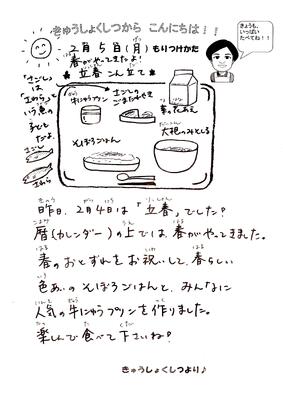 きゅうしょくしつから こんにちは！！
きょうも、
いっぱい
たべてね！！
2月5日(月) もりつけかた
春がやってきたよ！
★ 立春こん立て ★
「さごし」
は
「さわら」と
いう魚の
子ども
だよ。
さごし
さわら
牛にゅうプリン
さごしの
ごまだれやき
そぼろごはん
大根のみそしる
昨日、2月4日は「立春」でした？
暦(カレンダー)の上では、春がやってきました。
春のおとずれをお祝いして、春らしい
色あいのそぼろごはんと、みんなに
人気の牛にゅうプリンを作りました。
楽しんで食べて下さいね？
きゅうしょくしつより♪